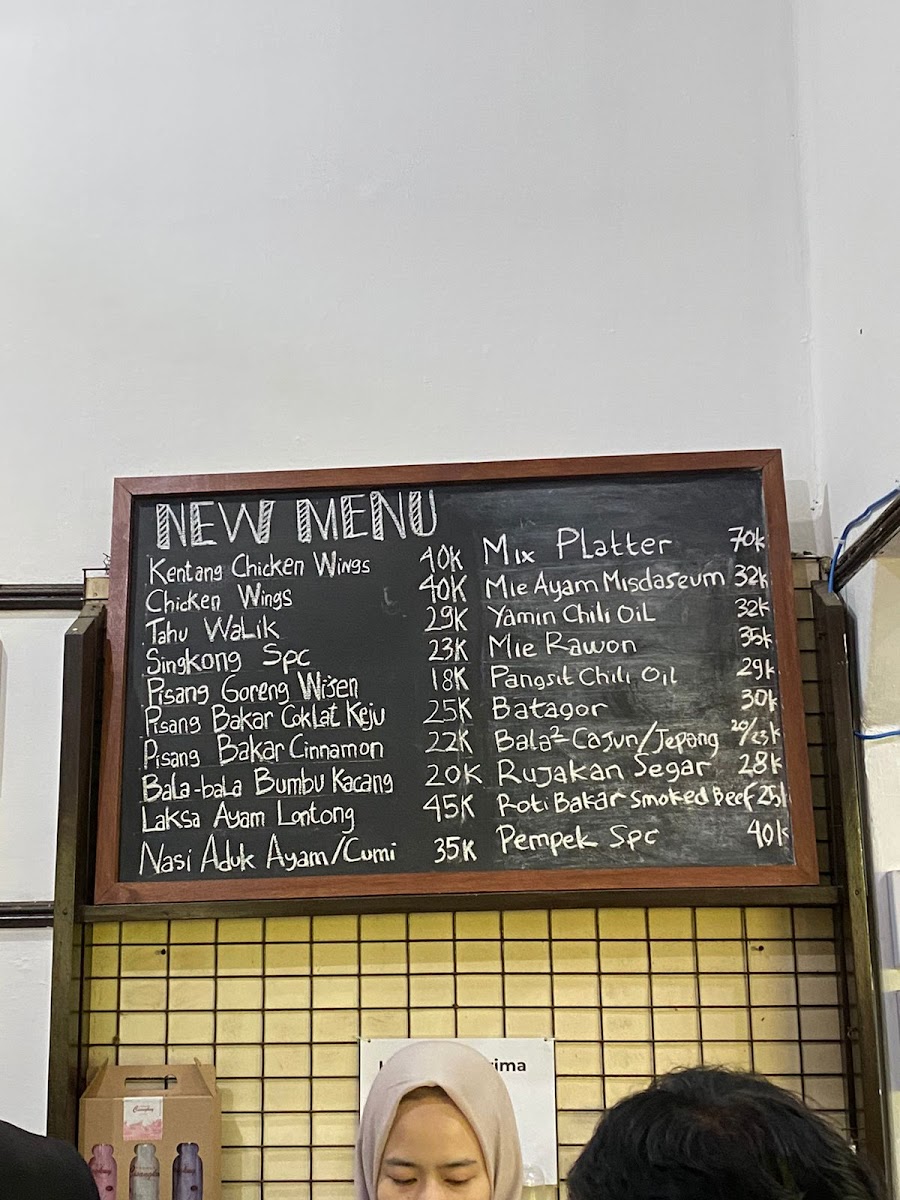 NEW MENU
Kentang Chicken Wings 40K
Chicken Wings 40K
Tahu Walik 29K
Singkong Spc 23K
Pisang Goreng Wijen 18K
Pisang Bakar Coklat Keju 25K
Pisang Bakar Cinnamon 22K
Bala-bala Bumbu Kacang 20K
Laksa Ayam Lontong 45K
Nasi Aduk Ayam/Cumi 35K
Mix Platter 70k
Mie Ayam Misdaseum 32k
Yamin Chili Oil 32k
Mie Rawon 35k
Pangsit Chili Oil 29k
Batagor 30k
Bala²-Cajun/Jepang 20/23k
Rujakan Segar 28k
Roti Bakar Smoked Beef 25k
Pempek Spc 40k